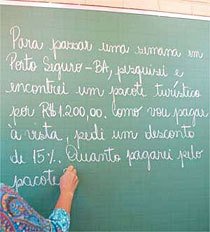 Para passar uma semana em
Porto Seguro-BA, pesquisei e
encontrei um pacote turístico
por R$1.200,00. Como vou pagar
à vista, pedi um desconto
de 15%. Quanto pagarei pelo
pacote?